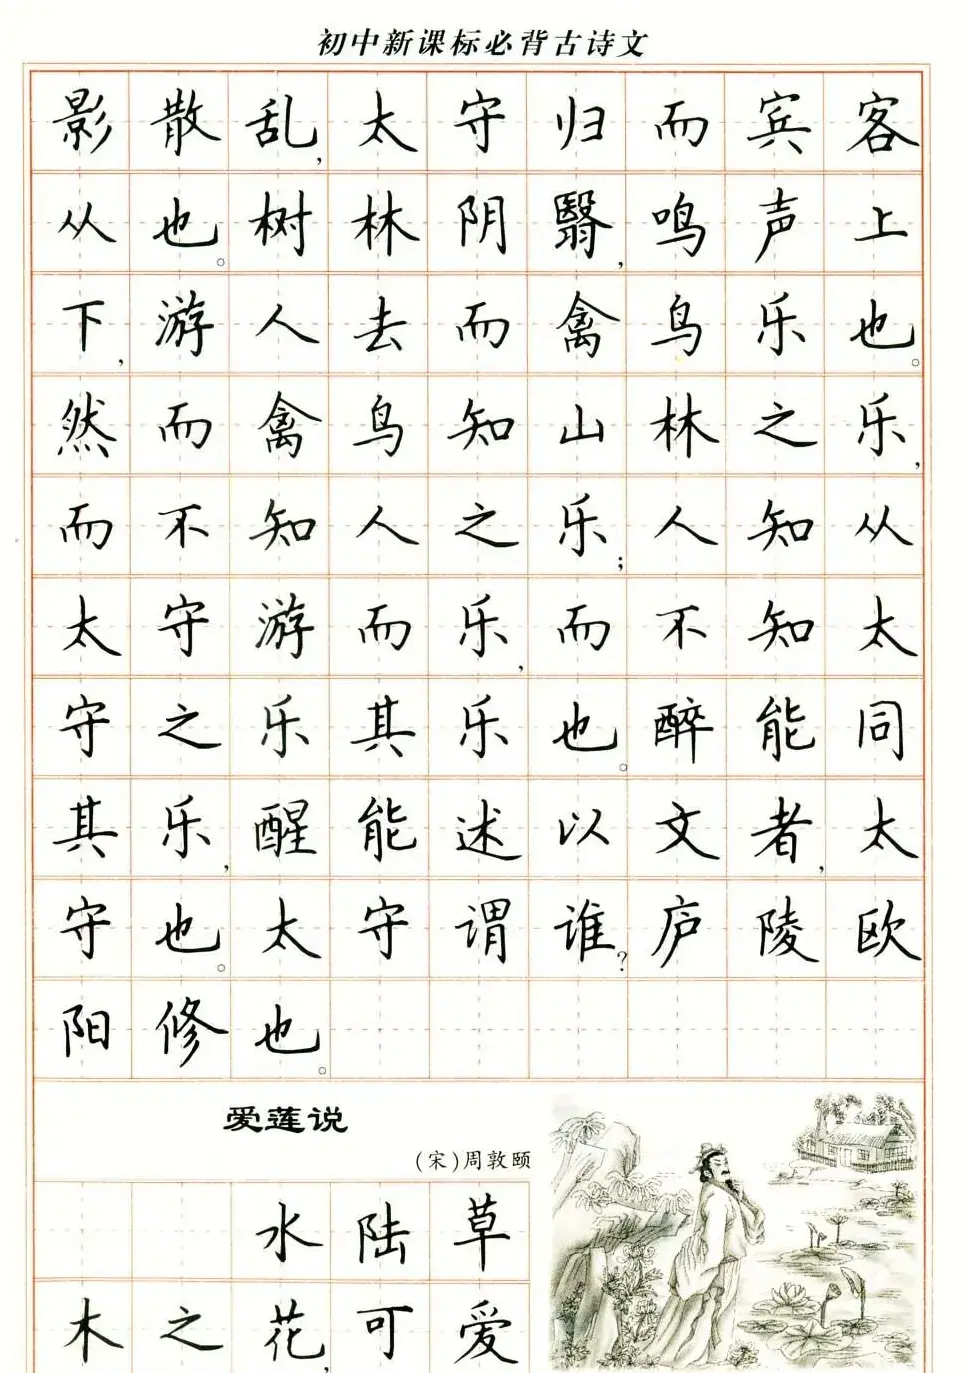 初中新课标必背古诗文
影散乱,太守归而宾客
从也。树林阴翳,鸣声上
下,游人去而禽鸟乐也。
然而禽鸟知山林之乐,
而不知人之乐;人知从
太守游而乐,而不知太
守之乐其乐也。醉能同
其乐,醒能述以文者,太
守也。太守谓谁?庐陵欧
阳修也。
爱莲说
(宋)周敦颐
水陆草
木之花,可爱